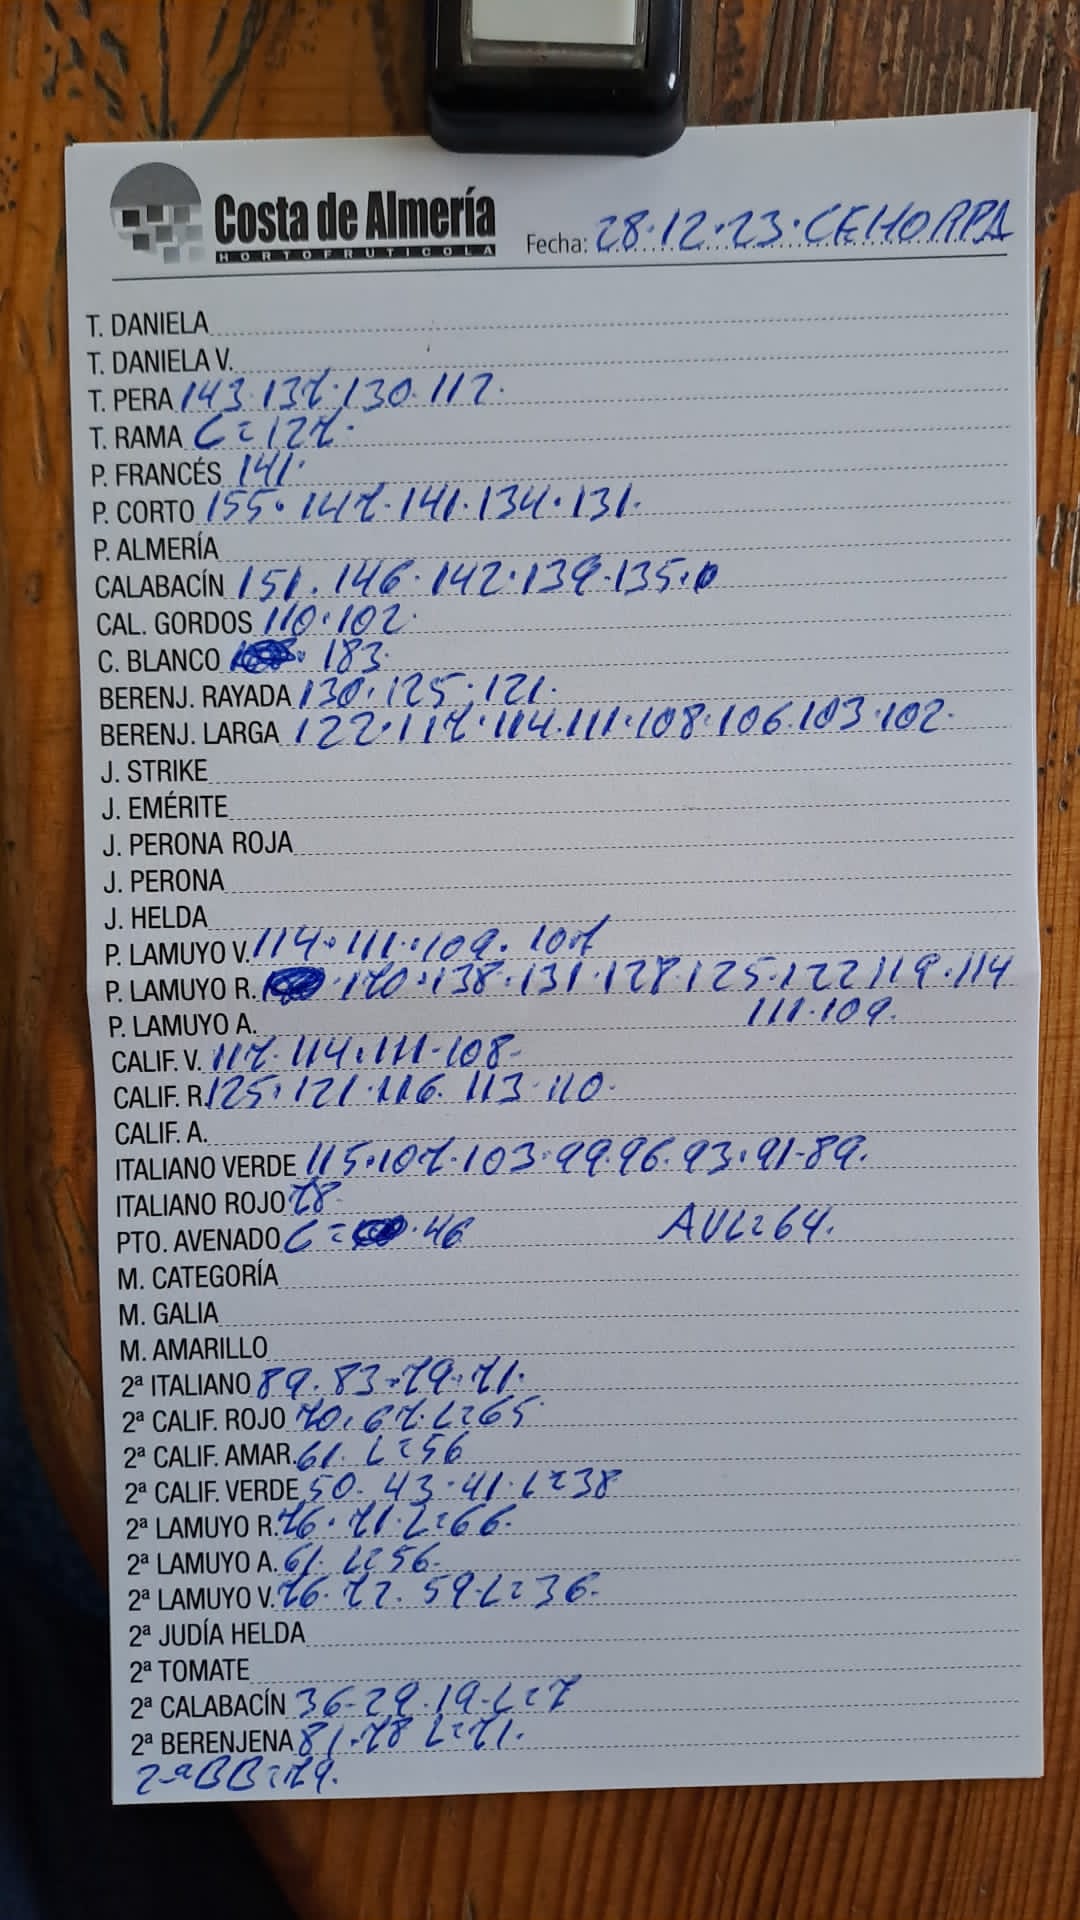 Costa de Almería
HORTOFRUTICOLA
Fecha: 28.12.23. CEHORPA
T. DANIELA
T. DANIELA V.
T. PERA 143. 137. 130. 117.
T. RAMA C = 127.
P. FRANCÉS 141.
P. CORTO 155. 147. 141. 134. 131.
P. ALMERÍA
CALABACÍN 151. 146. 142. 139. 135.
CAL. GORDOS 110. 102.
C. BLANCO 183.
BERENJ. RAYADA 130. 125. 121.
BERENJ. LARGA 122. 117. 114. 111. 108. 106. 103. 102.
J. STRIKE
J. EMÉRITE
J. PERONA ROJA
J. PERONA
J. HELDA
P. LAMUYO V. 114. 111. 109. 107
P. LAMUYO R. 170. 138. 131. 127. 125. 122 119. 114
111. 109.
P. LAMUYO A.
CALIF. V. 117. 114. 111. 108-
CALIF. R. 125. 121. 116. 113. 110.
CALIF. A.
ITALIANO VERDE 115. 107. 103. 99. 96. 93. 91-89.
ITALIANO ROJO 78
PTO. AVENADO C = 46 AVL=64.
M. CATEGORÍA
M. GALIA
M. AMARILLO
2ª ITALIANO 89. 83. 79. 71.
2ª CALIF. ROJO 70. 67. L=65
2ª CALIF. AMAR. 61. L=56
2ª CALIF. VERDE 50. 43. 41. L=38
2ª LAMUYO R. 76. 71. L=66.
2ª LAMUYO A. 61. L=56.
2ª LAMUYO V. 76. 72. 59-L=36-
2ª JUDÍA HELDA
2ª TOMATE
2ª CALABACÍN 36-29. 19-L=7
2ª BERENJENA 81. 78 L=71.
2-ª BB=79.